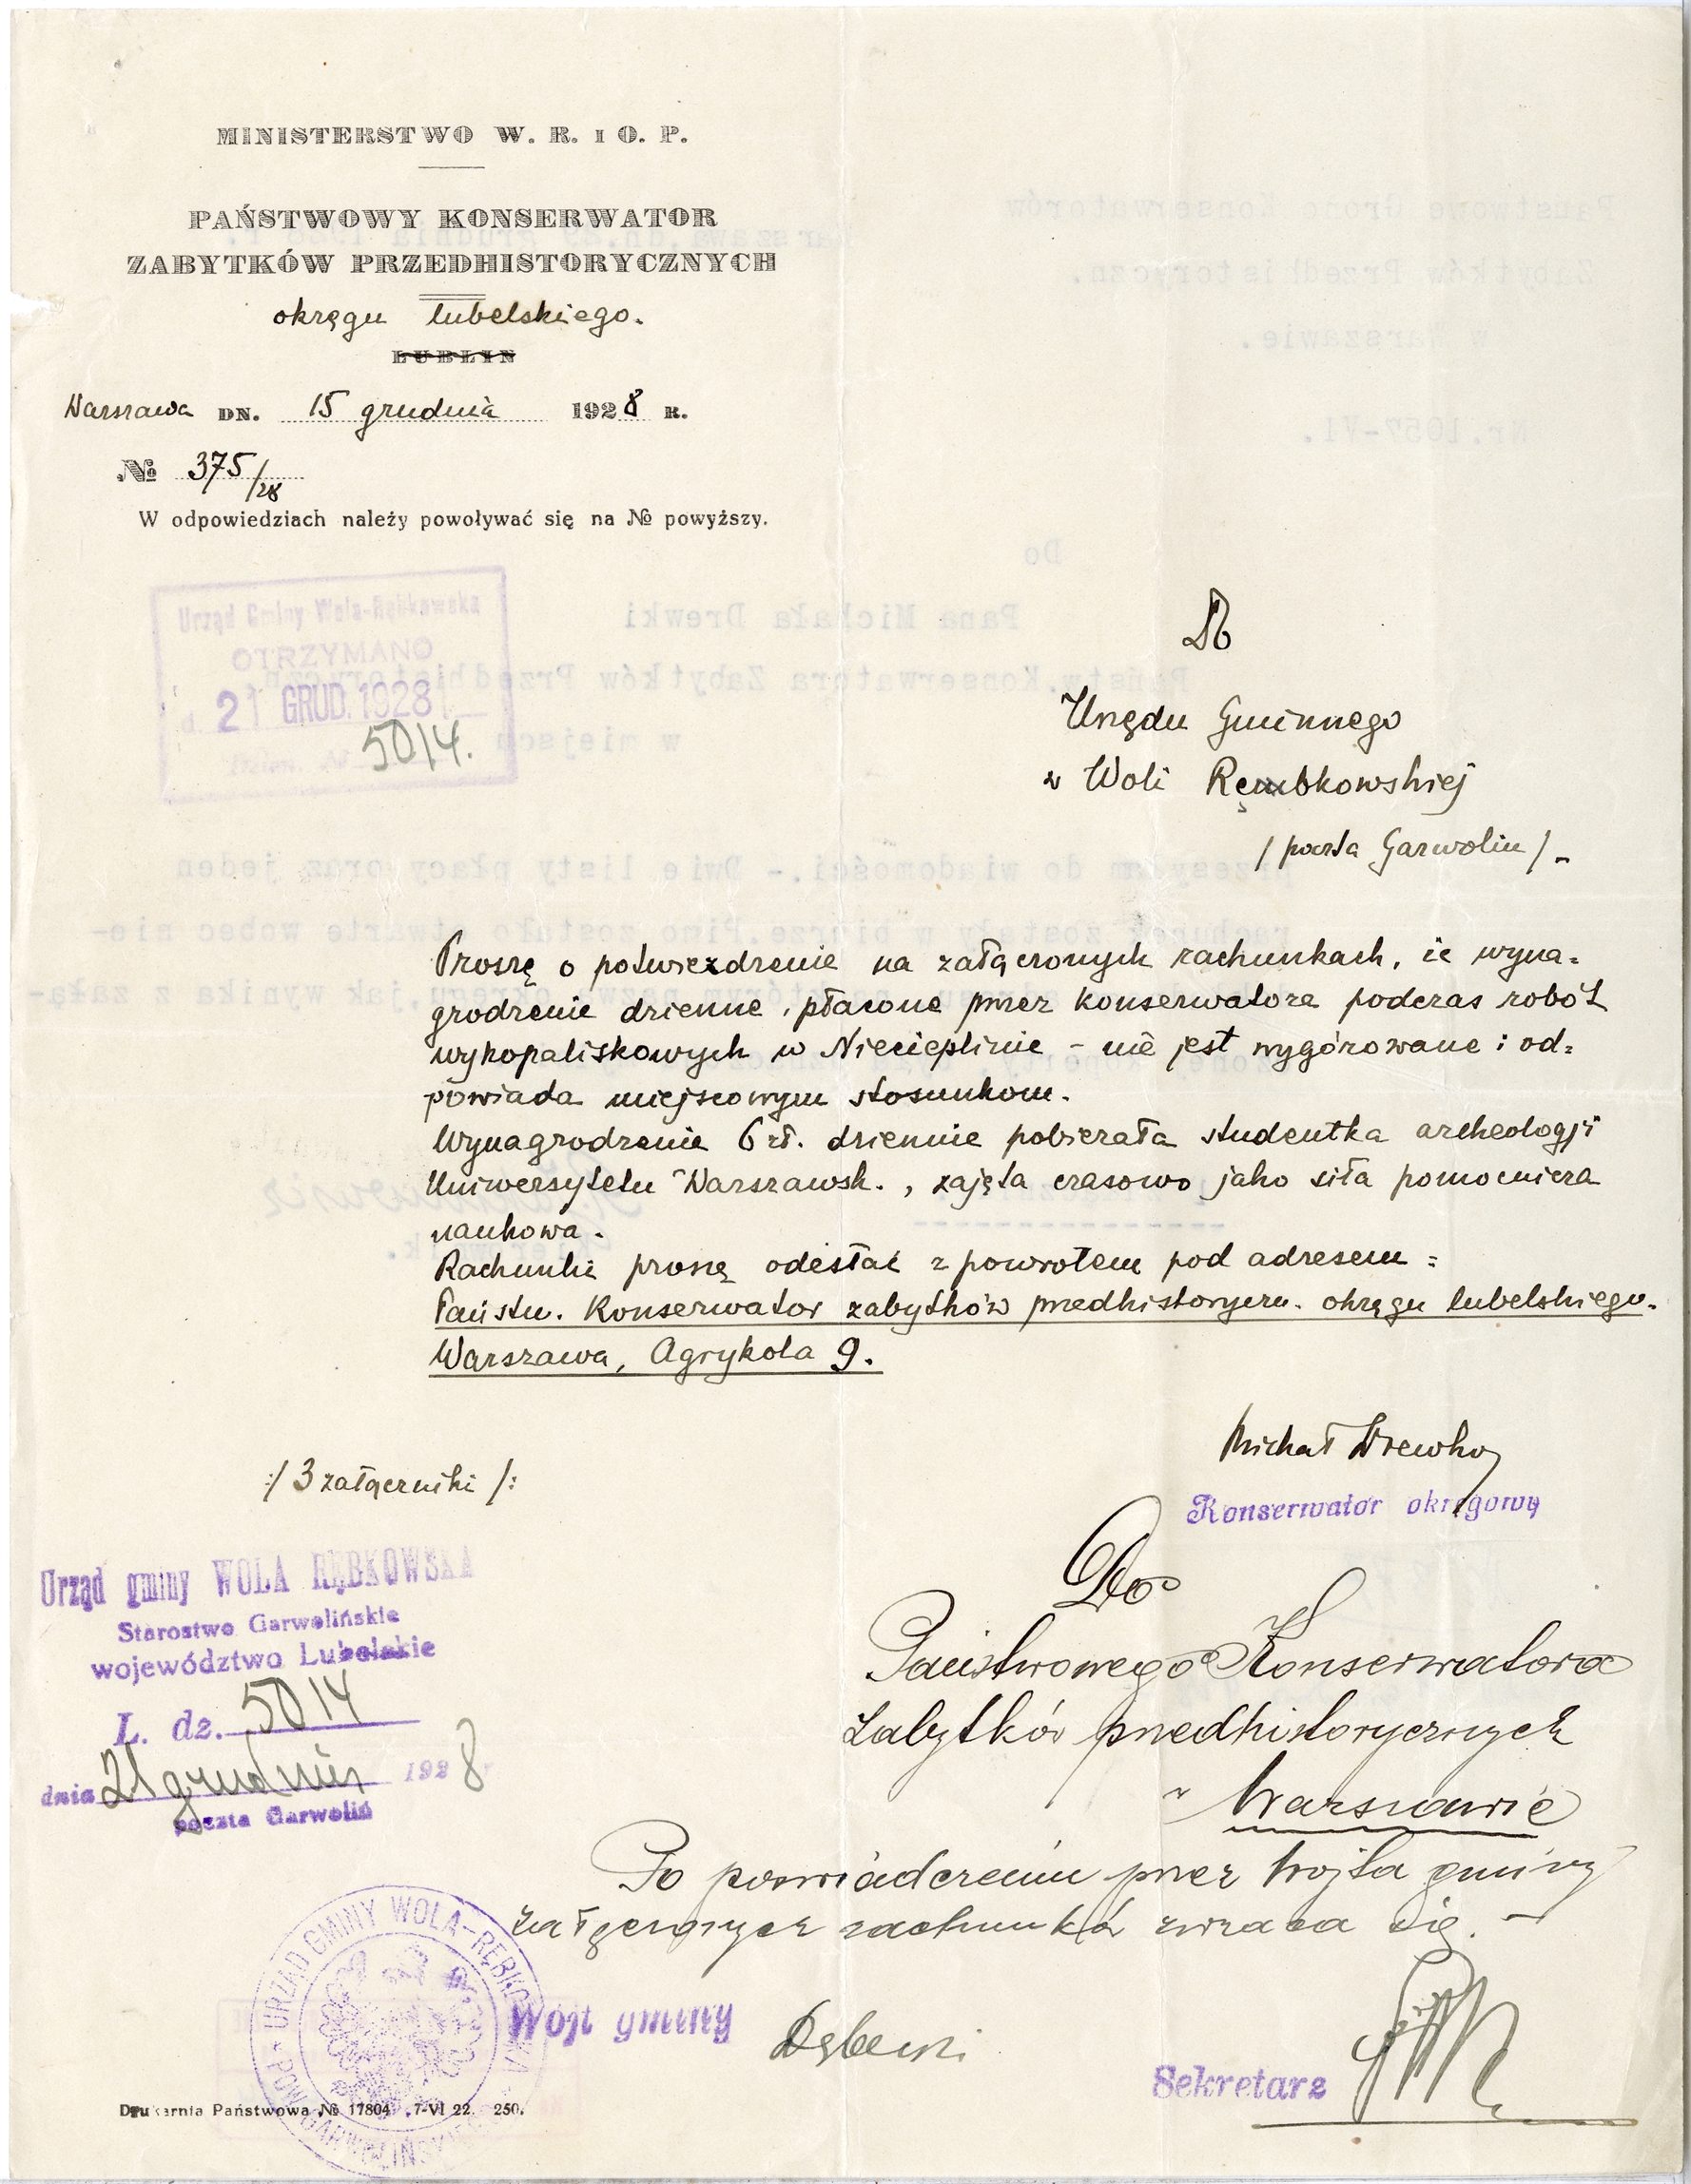 MINISTERSTWO W. R. i O. P.
PAŃSTWOWY KONSERWATOR
ZABYTKÓW PRZEDHISTORYCZNYCH
okręgu lubelskiego.
LUBLIN
Warszawa DN. 15 grudnia 1928 R.
№ 375/28
W odpowiedziach należy powoływać się na № powyższy.
Urząd Gminy Wola-Rębkowska
OTRZYMANO
d. 21 GRUD. 1928
Dzien. № 5014.
Do
Urzędu Gminnego
w Woli Rębkowskiej
/ poczta Garwolin /-
Proszę o potwierdzenie na załączonych rachunkach, że wyna-
grodzenie dzienne, płacone przez konserwatora podczas robót
wykopaliskowych w Niecieplinie - nie jest wygórowane i od-
powiada miejscowym stosunkom.
Wynagrodzenie 6 zł. dziennie pobierała studentka archeologji
Uniwersytetu Warszawsk., zajęta czasowo jako siła pomocnicza
naukowa.
Rachunki proszę odesłać z powrotem pod adresem:
Państw. Konserwator zabytków przedhistoryczn. okręgu lubelskiego.
Warszawa, Agrykola 9.
Michał Drewko
Konserwator okręgowy
:/ 3 załączniki /:
Urząd gminy WOLA RĘBKOWSKA
Starostwo Garwolińskie
województwo Lubelskie
L. dz. 5014
dnia 21 grudnia 1928 r
poczta Garwolin
Do
Państwowego Konserwatora
Zabytków przedhistorycznych
w Warszawie
Po poświadczeniu przez Wójta gminy
załączonych rachunków zwraca się. -
URZĄD GMINY WOLA-RĘBKOWSKA * POW. GARWOLIŃSKIEGO
Wójt gminy
Sekretarz
Drukarnia Państwowa № 17804. 7-VI 22. 250.